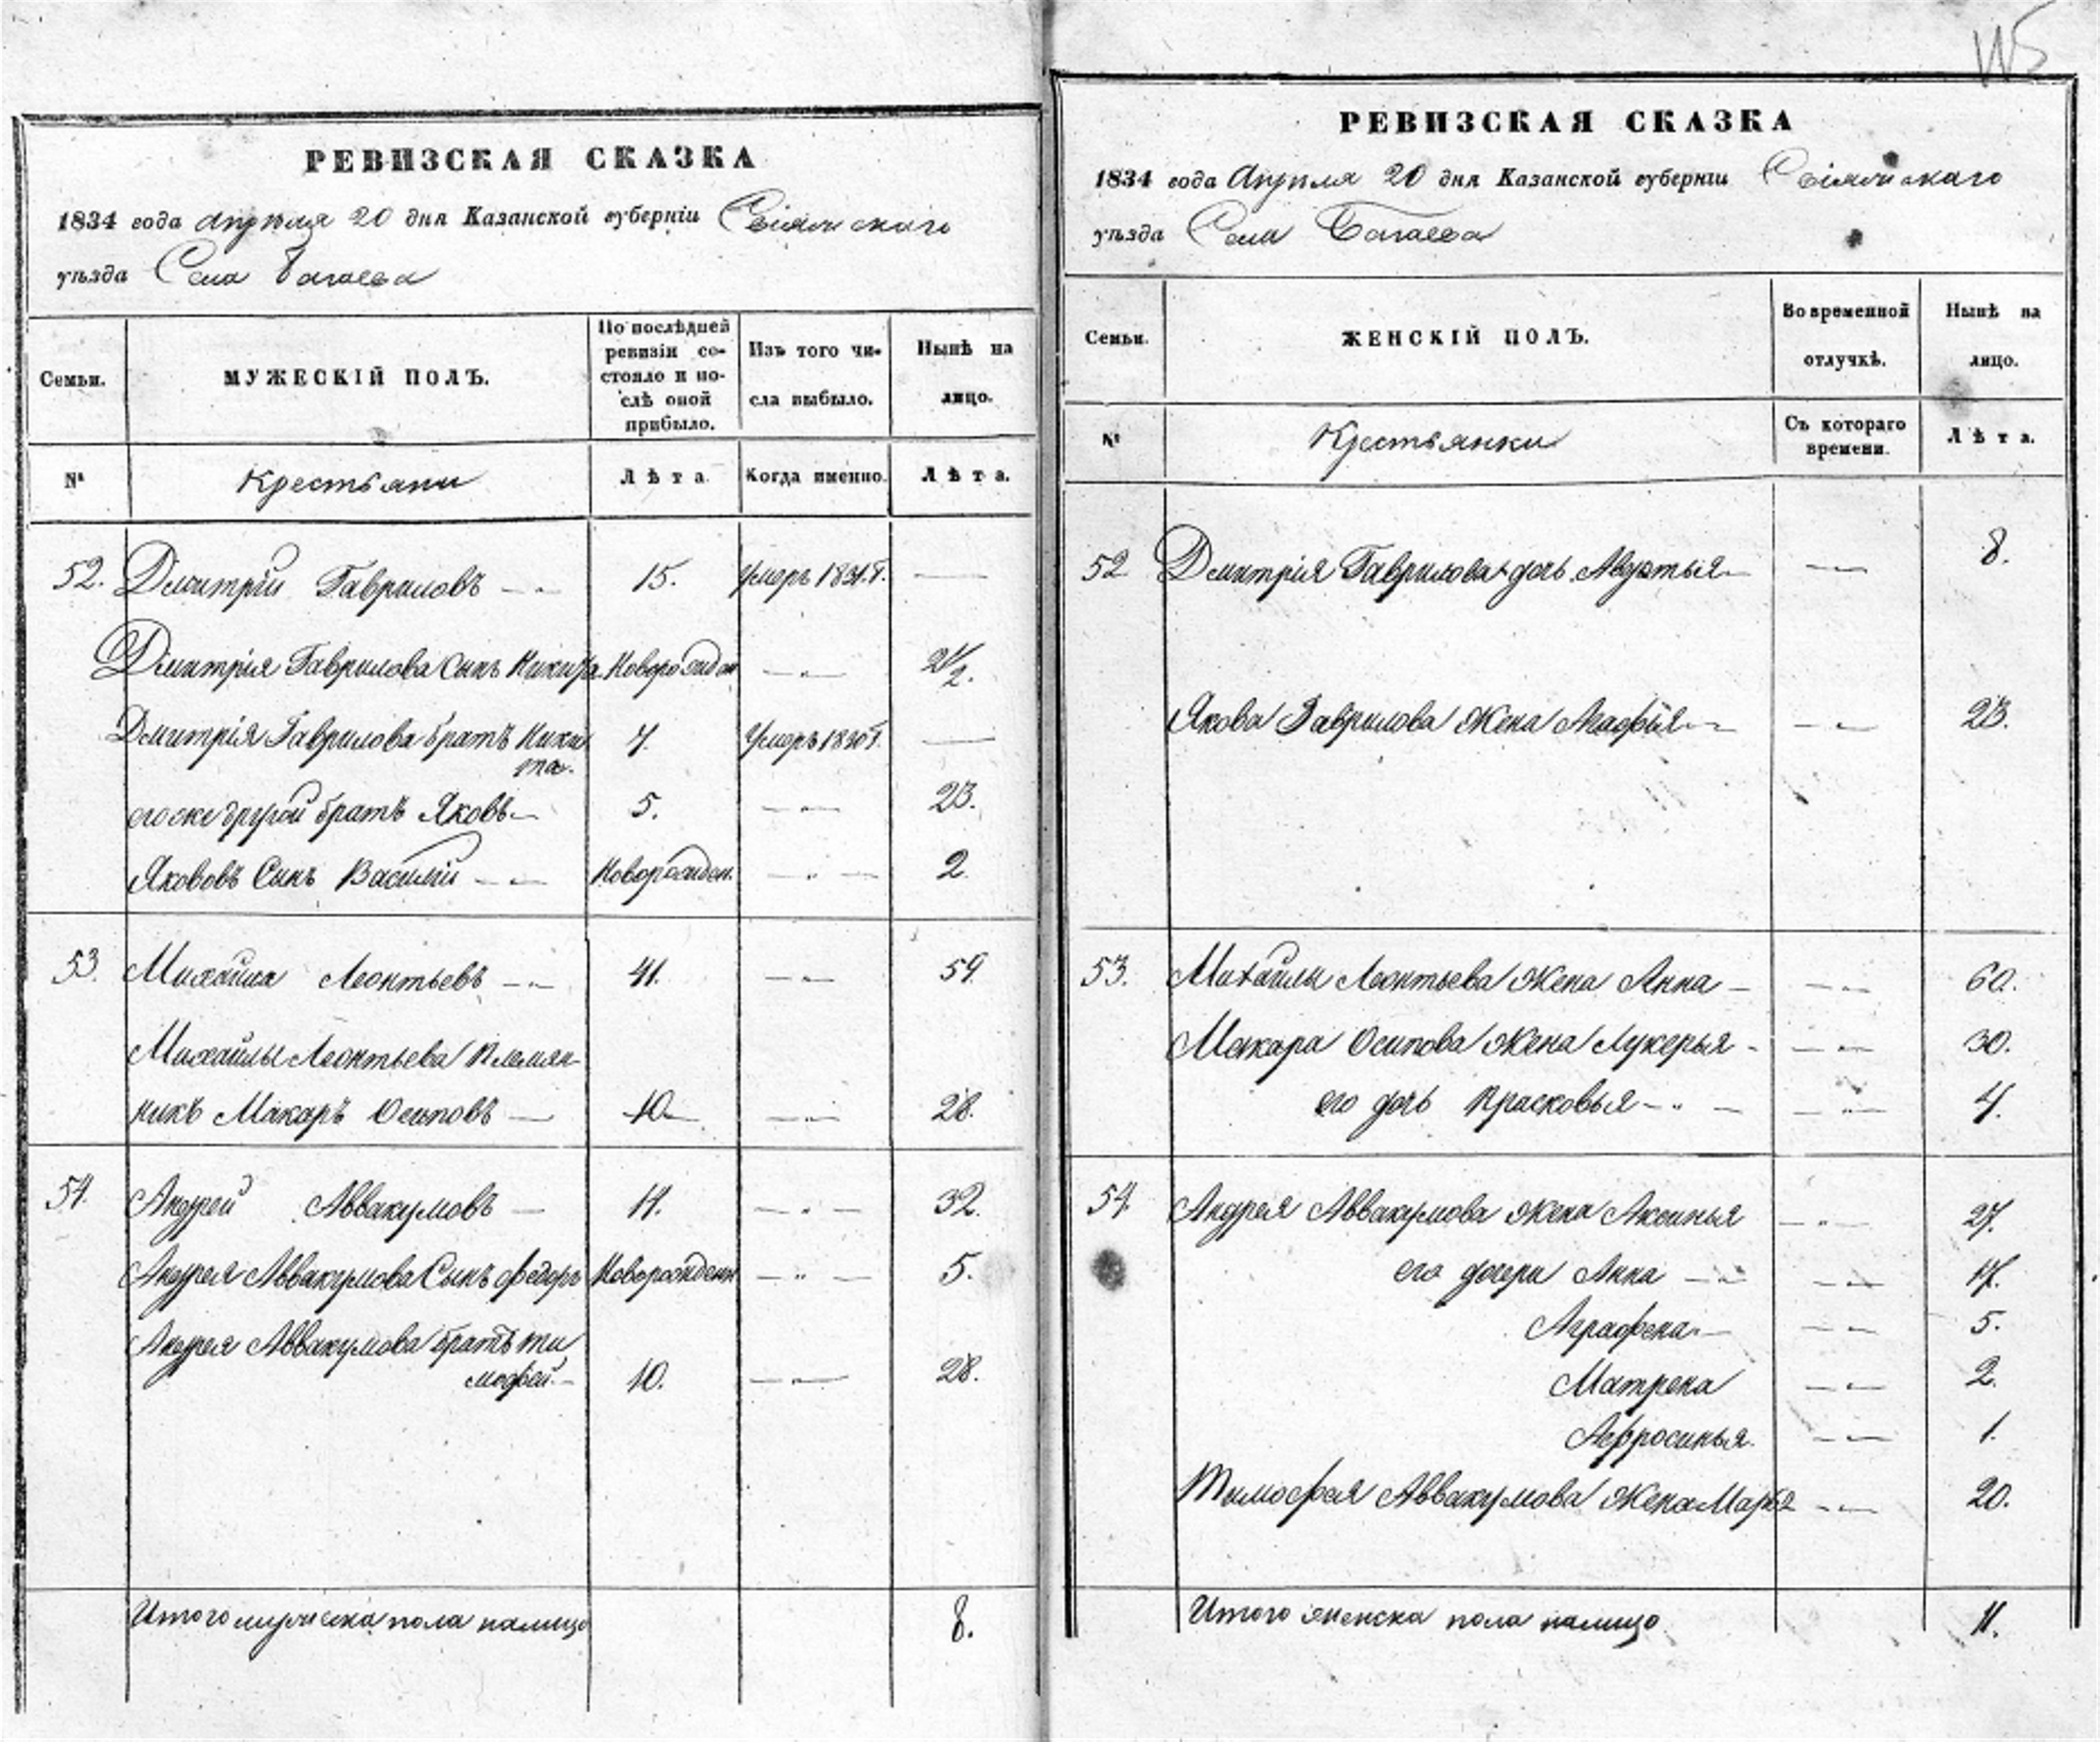 РЕВИЗСКАЯ СКАЗКА
1834 года апреля 20 дня Казанской губерніи Свіяжскаго
уѣзда Села Багаева
Семьи.
МУЖЕСКІЙ ПОЛЪ.
По послѣдней
ревизіи со-
стояло и по-
слѣ оной
прибыло.
Изъ того чи-
сла выбыло.
Нынѣ на
лицо.
№
Крестьяни
Лѣта.
Когда именно.
Лѣта.
52. Дмитрій Гавриловъ 15. Умеръ 1831.г.
Дмитрія Гаврилова Сынъ Никита Новорожден 2 1/2.
Дмитрія Гаврилова братъ Ники 7. Умеръ 1830г.
та.
его же другой братъ Яковъ 5. 23.
Якововъ Сынъ Василій Новорожден. 2
53. Михайла Леонтьевъ 41. 59.
Михайлы Леонтьева племян-
никъ Макаръ Осиповъ 10 28.
54. Андрей Аввакумовъ 14. 32.
Андрея Аввакумова Сынъ Федоръ Новорожденн 5.
Андрея Аввакумова братъ ти
мофей. 10. 28.
Итого мужеска пола налицо 8.
РЕВИЗСКАЯ СКАЗКА
1834 года Апреля 20 дня Казанской губерніи Свіяжскаго
уѣзда Села Багаева
Семьи.
ЖЕНСКІЙ ПОЛЪ.
Во временной
отлучкѣ.
Нынѣ на
лицо.
№
Крестьянки
Съ котораго
времени.
Лѣта.
52 Дмитрія Гаврилова дочь Авдотья 8.
Якова Гаврилова Жена Агафья 23.
53. Михайлы Леонтьева Жена Анна 60.
Макара Осипова Жена Лукерья 30.
его дочь Прасковья 4.
54 Андрея Аввакумова Жена Аксинья 27.
его дочери Анна
Аграфена 5.
Матрена 2.
Афросинья. 1.
Тимофея Аввакумова Жена Марья 20.
Итого женска пола налицо 11.